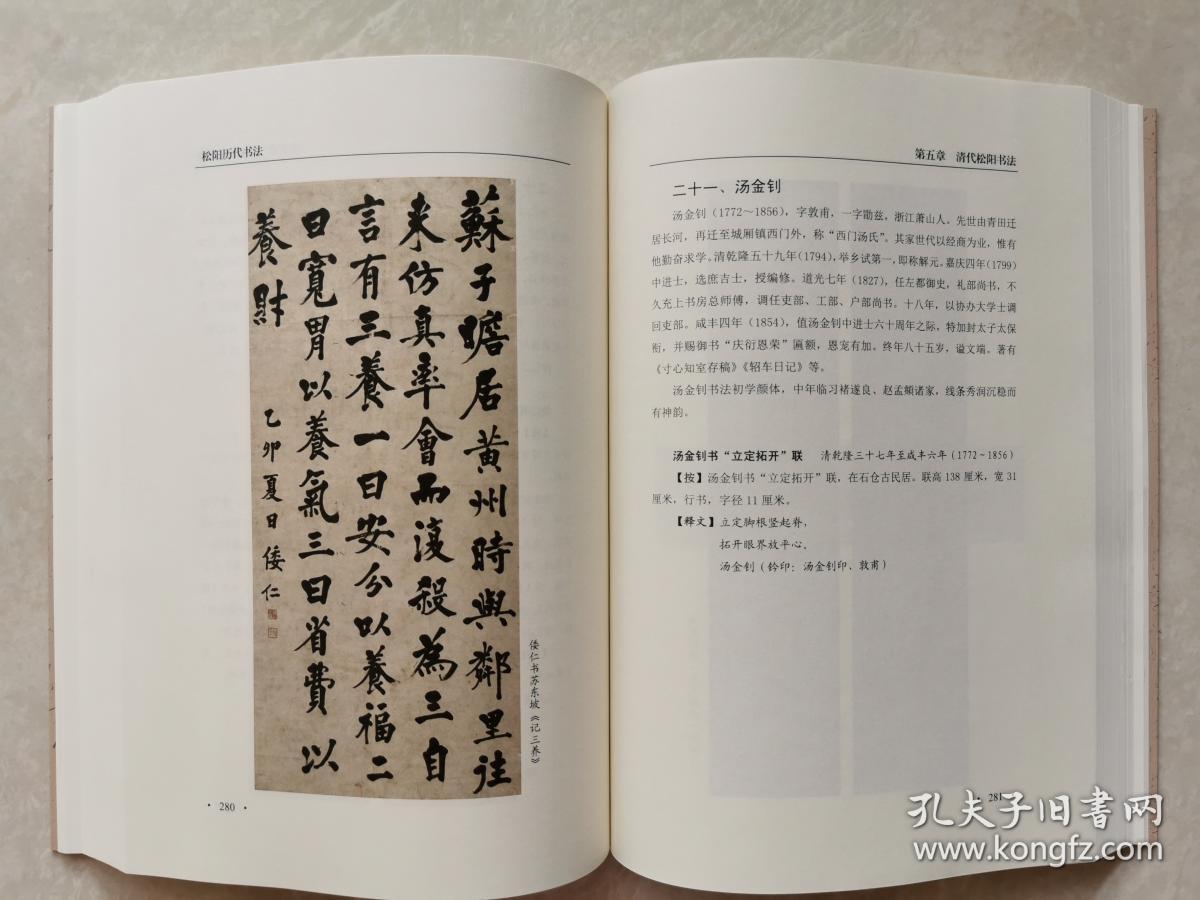 松阳历代书法
蘇子瞻居黄州時與鄰里往
来仿真率會而復殺為三自
言有三養一曰安分以養福二
曰寬胃以養氣三曰省費以
養財
乙卯夏日倭仁
倭仁书苏东坡《记三养》
· 280 ·
第五章 清代松阳书法
二十一、汤金钊
汤金钊（1772～1856），字敦甫，一字勖兹，浙江萧山人。先世由青田迁
居长河，再迁至城厢镇西门外，称“西门汤氏”。其家世代以经商为业，惟有
他勤奋求学。清乾隆五十九年（1794），举乡试第一，即称解元。嘉庆四年（1799）
中进士，选庶吉士，授编修。道光七年（1827），任左都御史，礼部尚书，不
久充上书房总师傅，调任吏部、工部、户部尚书。十八年，以协办大学士调
回吏部。咸丰四年（1854），值汤金钊中进士六十周年之际，特加封太子太保
衔，并赐御书“庆衍恩荣”匾额，恩宠有加。终年八十五岁，谥文端。著有
《寸心知室存稿》《轺车日记》等。
汤金钊书法初学颜体，中年临习褚遂良、赵孟頫诸家，线条秀润沉稳而
有神韵。
汤金钊书“立定拓开”联 清乾隆三十七年至咸丰六年（1772～1856）
【按】汤金钊书“立定拓开”联，在石仓古民居。联高 138 厘米，宽 31
厘米，行书，字径 11 厘米。
【释文】立定脚根竖起脊，
拓开眼界放平心。
汤金钊（钤印：汤金钊印、敦甫）
· 281
孔夫子旧书网
www.kongfz.com